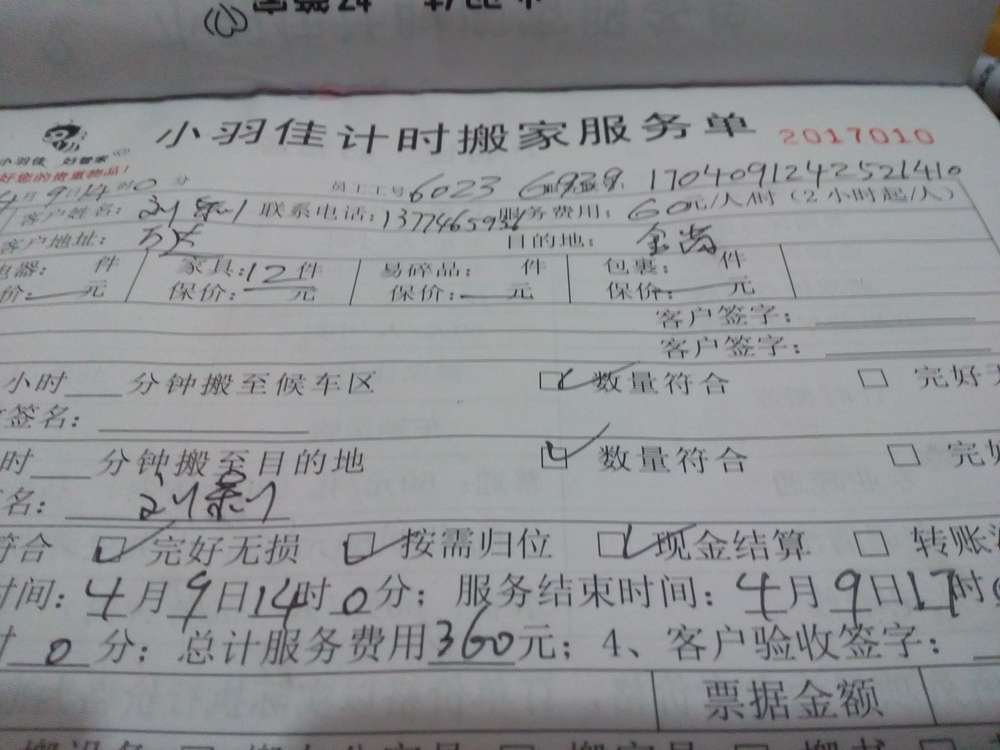 小羽佳计时搬家服务单 2017010
小羽佳 好管家
好您的贵重物品!
4月9日14时0分 员工工号6023 6939. 1704091242521410
客户姓名: 联系电话: 服务费用: 60元/人/时(2小时起/人)
客户地址: 目的地: 金尚
电器: 件 家具:12件 易碎品: 件 包裹: 件
价: 元 保价: 元 保价: 元 保价: 元
客户签字:
客户签字:
小时 分钟搬至候车区 □ 数量符合 □ 完好
签名:
时 分钟搬至目的地 □ 数量符合 □ 完好
名:
符合 □ 完好无损 □ 按需归位 □ 现金结算 □ 转账
时间:4月9日14时0分; 服务结束时间:4月9日17时
时0分; 总计服务费用360元; 4、客户验收签字:
票据金额